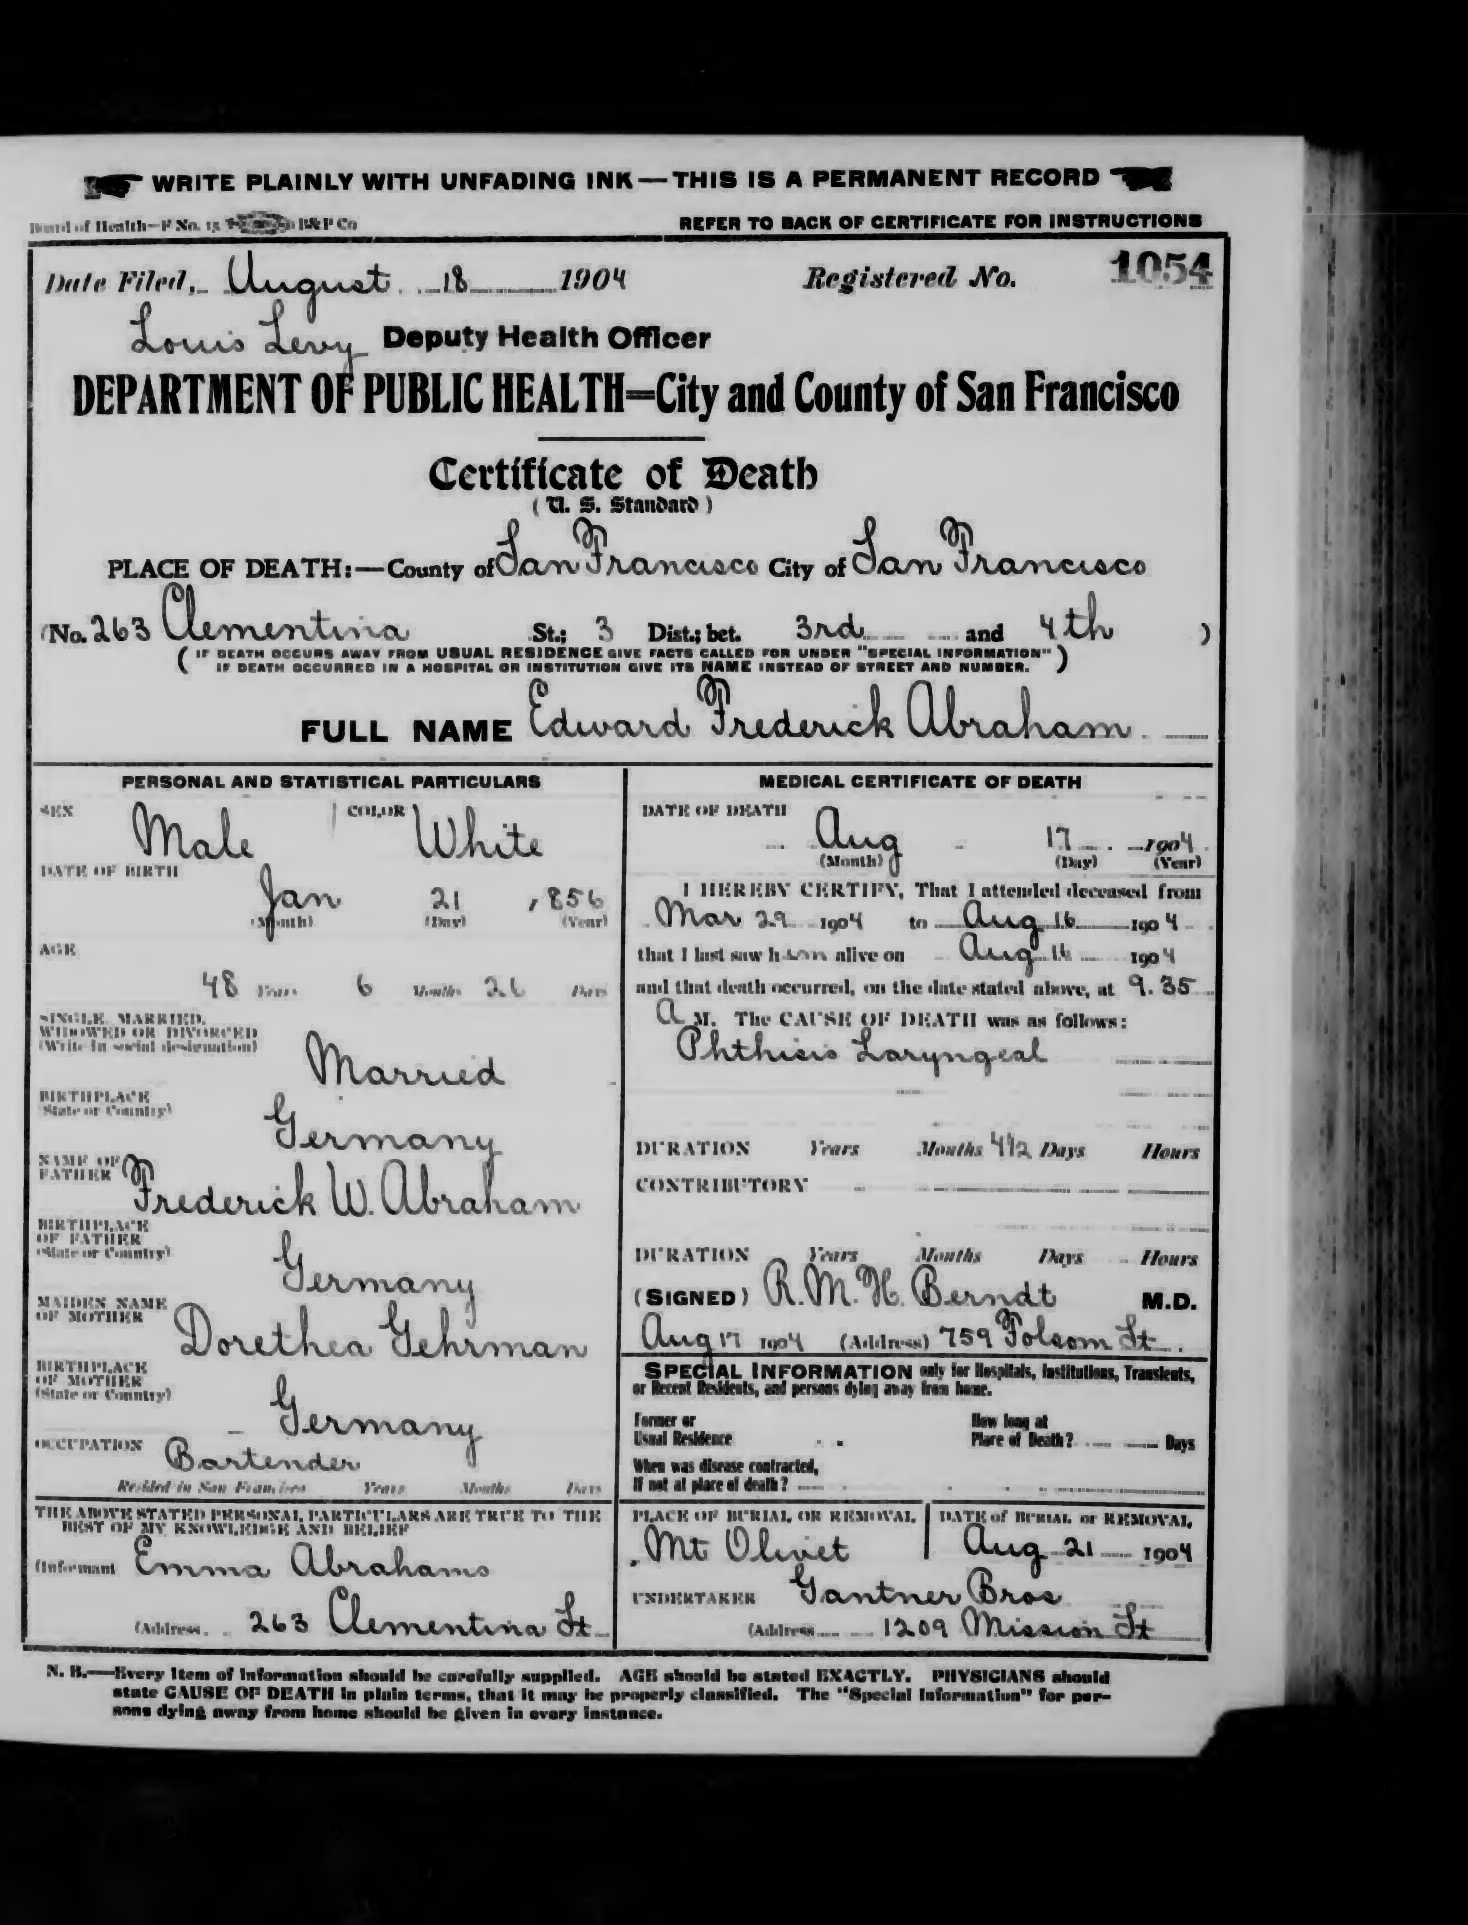 WRITE PLAINLY WITH UNFADING INK—THIS IS A PERMANENT RECORD
Board of Health—F No. 15 B&P Co REFER TO BACK OF CERTIFICATE FOR INSTRUCTIONS
Date Filed, August 18 1904 Registered No. 1054
Louis Levy Deputy Health Officer
DEPARTMENT OF PUBLIC HEALTH=City and County of San Francisco
Certificate of Death
(U. S. Standard)
PLACE OF DEATH:—County of San Francisco City of San Francisco
(No. 263 Clementina St.; 3 Dist.; bet. 3rd and 4th )
( IF DEATH OCCURS AWAY FROM USUAL RESIDENCE GIVE FACTS CALLED FOR UNDER "SPECIAL INFORMATION" )
IF DEATH OCCURRED IN A HOSPITAL OR INSTITUTION GIVE ITS NAME INSTEAD OF STREET AND NUMBER.
FULL NAME Edward Frederick Abraham
PERSONAL AND STATISTICAL PARTICULARS
SEX Male COLOR White
DATE OF BIRTH
Jan 21 , 856
(Month) (Day) (Year)
AGE
48 Years 6 Months 26 Days
SINGLE, MARRIED,
WIDOWED OR DIVORCED
(Write in social designation)
Married
BIRTHPLACE
(State or Country)
Germany
NAME OF
FATHER
Frederick W. Abraham
BIRTHPLACE
OF FATHER
(State or Country)
Germany
MAIDEN NAME
OF MOTHER
Dorethea Gehrman
BIRTHPLACE
OF MOTHER
(State or Country)
Germany
OCCUPATION Bartender
Resided in San Francisco Years Months Days
THE ABOVE STATED PERSONAL PARTICULARS ARE TRUE TO THE
BEST OF MY KNOWLEDGE AND BELIEF
(Informant Emma Abrahams
(Address 263 Clementina St
MEDICAL CERTIFICATE OF DEATH
DATE OF DEATH
Aug 17 1904
(Month) (Day) (Year)
I HEREBY CERTIFY, That I attended deceased from
Mar 29 1904 to Aug 16 1904
that I last saw him alive on Aug 16 1904
and that death occurred, on the date stated above, at 9.35
A M. The CAUSE OF DEATH was as follows:
Phthisis Laryngeal
DURATION Years Months 4 1/2 Days Hours
CONTRIBUTORY
DURATION Years Months Days Hours
(SIGNED) R.M.H. Berndt M.D.
Aug 17 1904 (Address) 759 Folsom St
SPECIAL INFORMATION only for Hospitals, Institutions, Transients,
or Recent Residents, and persons dying away from home.
Former or
Usual Residence
How long at
Place of Death? Days
When was disease contracted,
If not at place of death?
PLACE OF BURIAL OR REMOVAL
Mt Olivet
DATE of BURIAL or REMOVAL
Aug 21 1904
UNDERTAKER Gantner Bros
(Address 1209 Mission St
N. B.—Every Item of Information should be carefully supplied. AGE should be stated EXACTLY. PHYSICIANS should
state CAUSE OF DEATH in plain terms, that it may be properly classified. The "Special Information" for per-
sons dying away from home should be given in every instance.